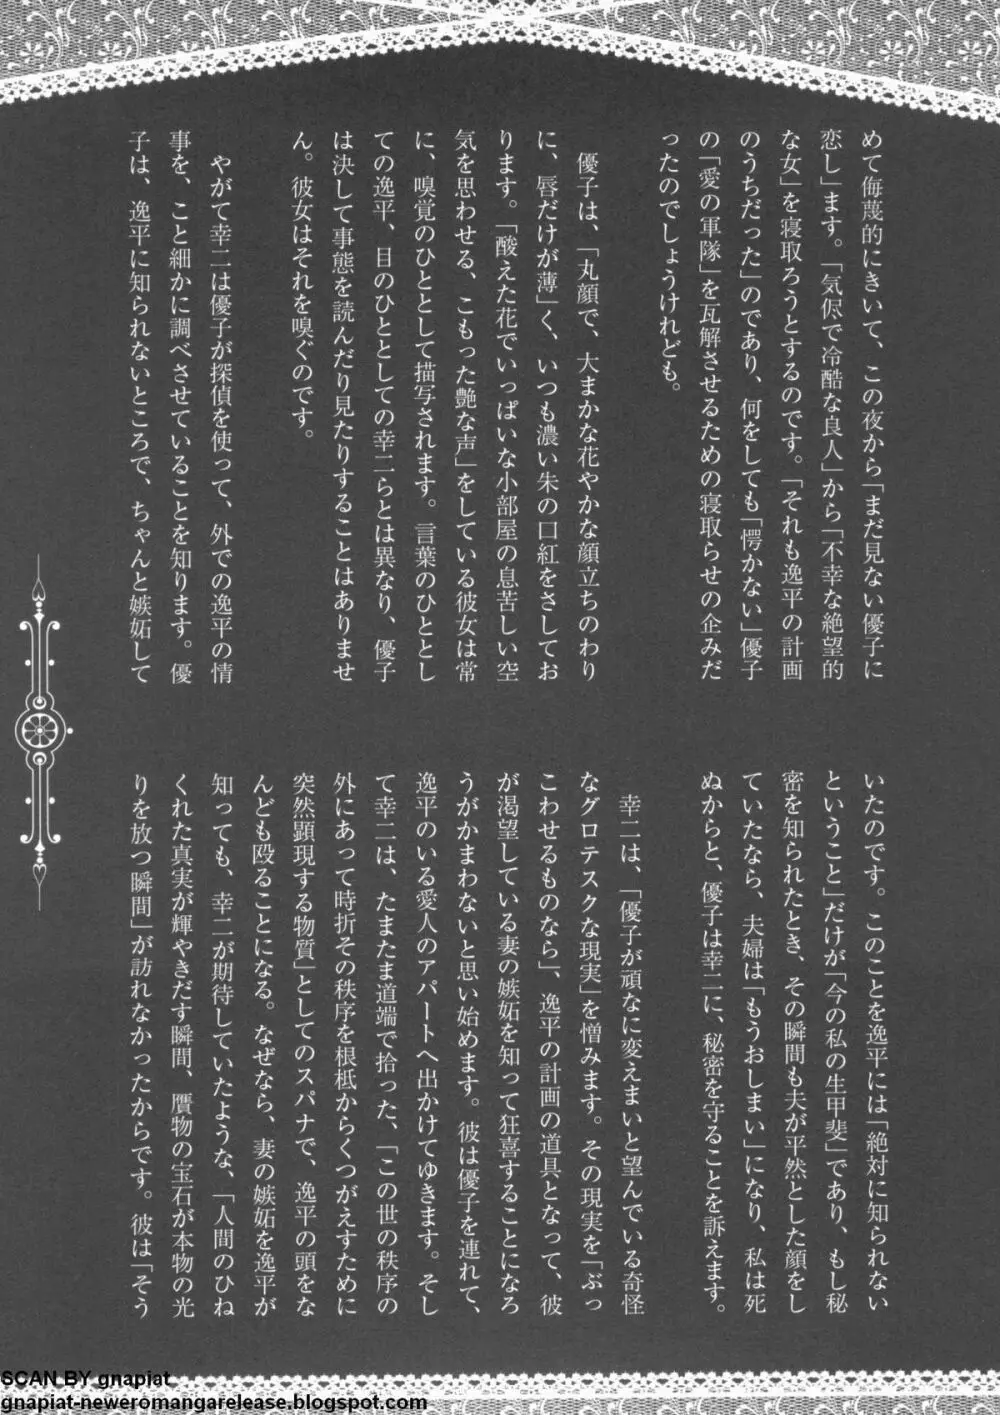 めて侮蔑的にきいて、この夜から「まだ見ない優子に
恋し」ます。「気侭で冷酷な良人」から「不幸な絶望的
な女」を寝取ろうとするのです。「それも逸平の計画
のうちだった」のであり、何をしても「愕かない」優子
の「愛の軍隊」を瓦解させるための寝取らせの企みだ
ったのでしょうけれども。
優子は、「丸顔で、大まかな花やかな顔立ちのわり
に、唇だけが薄」く、いつも濃い朱の口紅をさしてお
ります。「酸えた花でいっぱいな小部屋の息苦しい空
気を思わせる、こもった艶な声」をしている彼女は常
に、嗅覚のひととして描写されます。言葉のひととし
ての逸平、目のひととしての幸二らとは異なり、優子
は決して事態を読んだり見たりすることはありませ
ん。彼女はそれを嗅ぐのです。
やがて幸二は優子が探偵を使って、外での逸平の情
事を、こと細かに調べさせていることを知ります。優
子は、逸平に知られないところで、ちゃんと嫉妬して
いたのです。このことを逸平には「絶対に知られない
ということ」だけが「今の私の生甲斐」であり、もし秘
密を知られたとき、その瞬間も夫が平然とした顔をし
ていたなら、夫婦は「もうおしまい」になり、私は死
ぬからと、優子は幸二に、秘密を守ることを訴えます。
幸二は、「優子が頑なに変えまいと望んでいる奇怪
なグロテスクな現実」を憎みます。その現実を「ぶっ
こわせるものなら」、逸平の計画の道具となって、彼
が渇望している妻の嫉妬を知って狂喜することになろ
うがかまわないと思い始めます。彼は優子を連れて、
逸平のいる愛人のアパートへ出かけてゆきます。そし
て幸二は、たまたま道端で拾った、「この世の秩序の
外にあって時折その秩序を根柢からくつがえすために
突然顕現する物質」としてのスパナで、逸平の頭をな
んども殴ることになる。なぜなら、妻の嫉妬を逸平が
知っても、幸二が期待していたような、「人間のひね
くれた真実が輝やきだす瞬間、贋物の宝石が本物の光
りを放つ瞬間」が訪れなかったからです。彼は「そう
SCAN BY gnapiat
gnapiat-neweromangarelease.blogspot.com